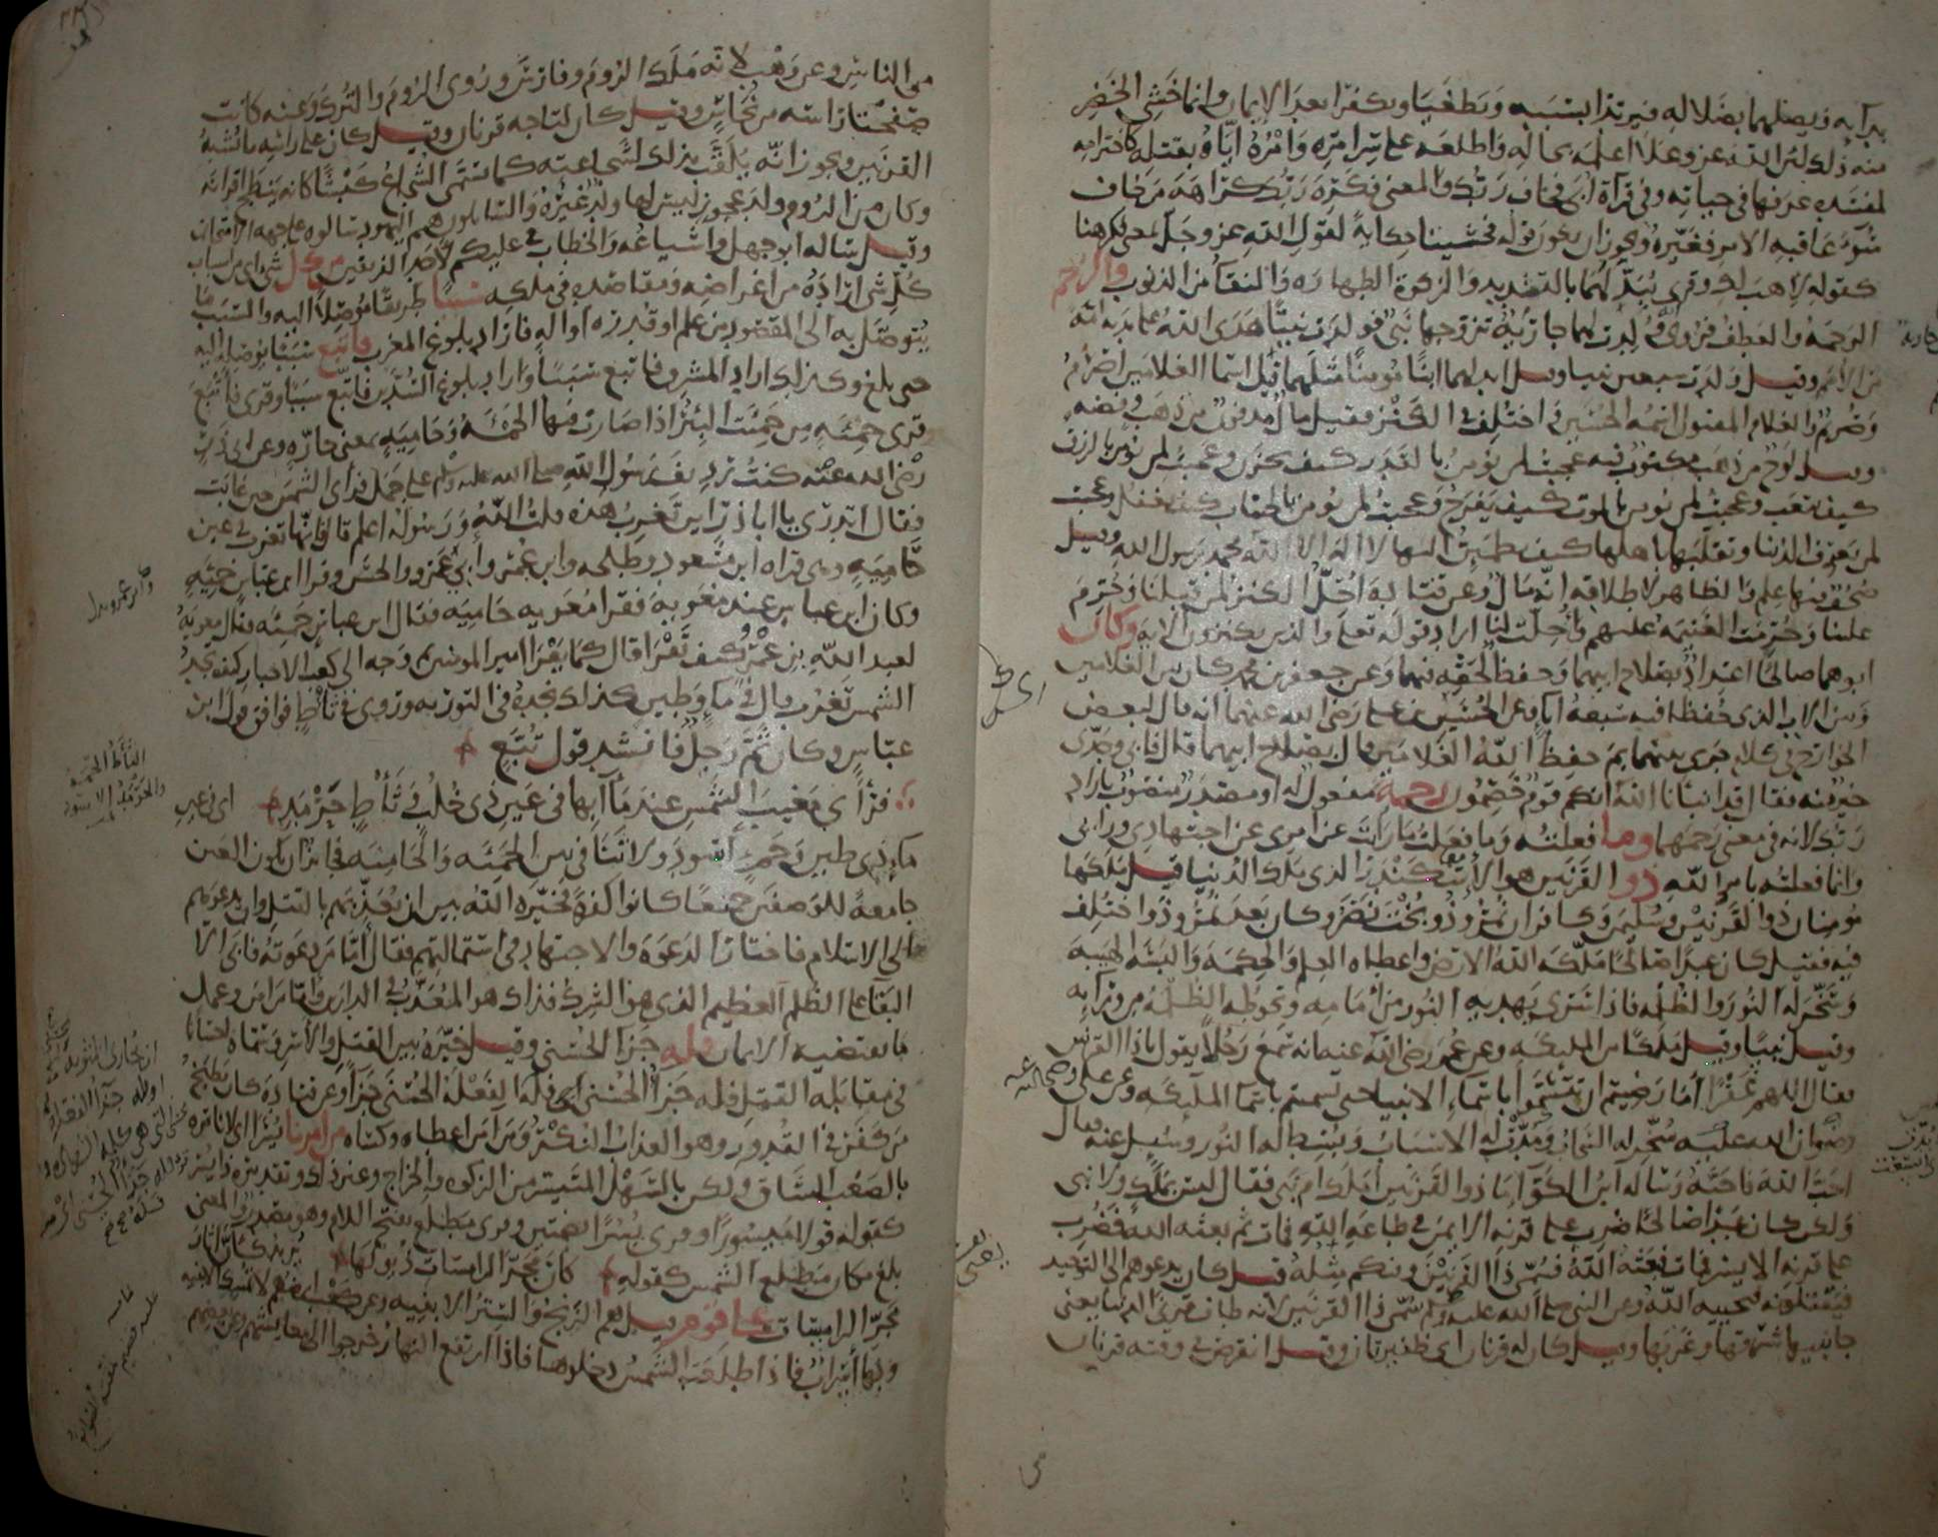 بدايه ويضلهما بضلاله فيرتدا بسببه ويطغيا ويكفرا بعد الإيمان وانما خشي الخضر
منه ذلك لأن الله عز وعلا أعلمه بحاله واطلعه على سر امره وامره اياه بقتله كاخترامه
لمفسدة عرفها في حياته وفي قراة أبي فخاف ربك والمعنى فكره ربك كراهة من خاف
سوء عاقبة الامر فغيره ويجوز ان يكون قوله فخشينا حكاية لقول الله عز وجل بمعنى فكرهنا
كقوله لاهب لك وقرى يبدلهما بالتشديد والزكوة الطهارة والنقا من الذنوب والرحم
الرحمة والعطف وروى انه ولدت لهما جارية تزوجها نبي فولدت نبيا هدى الله على يديه امة
من الأمم وقيل ولدت سبعين نبيا وقيل ابدلهما ابنا مومنا مثلهما قيل اسما الغلامين اصرم
وصريم والغلام المقتول اسمه الحسين واختلف في الكنز فقيل مال مدفون من ذهب وفضه
وقيل لوح من ذهب مكتوب فيه عجبت لمن يومن بالقدر كيف يحزن وعجبت لمن يومن بالرزق
كيف يتعب وعجبت لمن يومن بالموت كيف يفرح وعجبت لمن يومن بالحساب كيف يغفل وعجبت
لمن يعرف الدنيا وتقلبها باهلها كيف يطمئن اليها لا اله الا الله محمد رسول الله وقيل
صحف فيها علم والظاهر لاطلاقه انه مال وعن قتادة احل الكنز لمن قبلنا وحرم
علينا وحرمت الغنيمة عليهم واحلت لنا اراد قوله تعلى والذين يكنزون الاية وكان
ابوهما صالحا اعتداد بصلاح ابيهما وحفظ لحقه فيهما وعن جعفر بن محمد كان بين الغلامين
وبين الاب الذي حفظا فيه سبعة آبا وعن الحسين بن علي رضى الله عنهما انه قال لبعض
الخوارج في كلام جرى بينهما بم حفظ الله الغلامين قال بصلاح ابيهما قال فابي وجدى
خير منه فقال قد انبانا الله انكم قوم خصمون رحمة مفعول له او مصدر منصوب باراد
ربك لانه في معنى رحمهما وما فعلته وما فعلت ما رايت عن امرى عن اجتهادي ورايي
وانما فعلته بامر الله ذو القرنين هو الاسكندر الذي ملك الدنيا قيل ملكها
مومنان ذو القرنين وسليمن وكافران نمروذ وبخت نصر وكان بعد نمروذ واختلف
فيه فقيل كان عبدا صالحا ملكه الله الارض واعطاه العلم والحكمة والبسه الهيبة
وسخر له النور والظلمه فاذا سرى يهديه النور من امامه وتحوطه الظلمة من ورايه
وقيل نبيا وقيل ملكا من المليكه وعن عمر رضى الله عنه انه سمع رجلا يقول ياذا القرنين
فقال اللهم غفرا اما رضيتم ان تتسموا باسماء الانبيا حتى تسميتم باسما المليكه وعن علي رضى الله عنه
رضوان الله عليه سخر له السحاب ومدت له الاسباب وبسط له النور وسيل عنه فقال
احب الله فاحبه وساله ابن الكوا ما ذو القرنين املك ام نبي فقال ليس بملك ولا نبي
ولكن كان عبدا صالحا ضرب على قرنه الايمن في طاعة الله فمات ثم بعثه الله فضرب
على قرنه الايسر فمات فبعثه الله فسمى ذا القرنين وفيكم مثله قيل كان يدعوهم الى التوحيد
فيقتلونه فيحييه الله وعن النبي صلى الله عليه وسلم سمى ذا القرنين لانه طاف قرني الدنيا يعني
جانبيها شرقها وغربها وقيل كان له قرنان اى ضفيرتان وقيل انقرض في وقته قرنان
من الناس وعن وهب لانه ملك الروم وفارس وروى الروم والترك وعنه كانت
صفحتا راسه من نحاس وقيل كان لتاجه قرنان وقيل كان على راسه ما يشبه
القرنين ويجوز انه يلقب بذلك لشجاعته كما يسمى الشجاع كبشا كانه ينطح اقرانه
وكان من الروم ولد عجوز ليس لها ولد غيره والسايلون هم اليهود سالوه على جهة الامتحان
وقيل ساله ابو جهل واشياعه والخطاب في عليكم لاحد الفريقين من كل شي اي من اسباب
كل شي اراده من اغراضه ومقاصده في ملكه سببا طريقا موصلا اليه والسبب ما
يتوصل به الى المقصود من علم او قدرة او اله فاراد بلوغ المغرب فاتبع سببا يوصله اليه
حتى بلغ وكذلك اراد المشرق فاتبع سببا واراد بلوغ السدين فاتبع سببا وقرى فاتبع
وقرى حمئه من حمئت البئر اذا صارت فيها الحمئه وحاميه بمعنى حارة وعن ابي ذر
رضى الله عنه كنت رديف رسول الله صلى الله عليه وسلم على جمل فراى الشمس حين غابت
فقال اتدرى يا ابا ذر اين تغرب هذه قلت الله ورسوله اعلم قال فانها تغرب في عين
حامية وهى قراة ابن مسعود وطلحه وابن عمر وابي عمرو والحسن وقرا ابن عباس حمئه
وكان ابن عباس عند معويه فقرا معويه حاميه فقال ابن عباس حمئه فقال معويه
لعبد الله بن عمرو كيف تقرا قال كما يقرا امير المومنين ثم وجه الى كعب الاحبار كيف تجد
الشمس تغرب قال في ما وطين كذلك نجده في التورية وروى في ثاط فوافق قول ابن
عباس وكان ثم رجل فانشد قول تبع
فرأى مغيب الشمس عند مآبها في عين ذى خلب وثاط حرمد اى في عين
ماء ذى طين وحمء اسود ولا تنافي بين الحمئه والحاميه فجايز ان تكون العين
جامعة للوصفين جميعا كانوا كفرة فخيره الله بين ان يعذبهم بالقتل وان يدعوهم
الى الاسلام فاختار الدعوة والاجتهاد في استمالتهم فقال اما من دعوته فابى الا
البقا على الظلم العظيم الذي هو الشرك فذاك هو المعذب في الدارين واما من امن وعمل
ما يقتضيه الايمان فله جزا الحسنى وقيل خيره بين القتل والاسر وسماه احسانا
في مقابلة القتل فله جزاء الحسنى اى فله الفعلة الحسنى جزا وعن قتادة كان يطبخ
من كفر في القدور وهو العذاب النكر ومن امن اعطاه وكساه من امرنا يسرا اى لا نامره
بالصعب الشاق ولكن بالسهل المتيسر من الزكوه والخراج وغير ذلك وتقديره ذا يسر
كقوله قولا ميسورا وقرى يسرا بضمتين وقرى مطلع بفتح اللام وهو مصدر والمعنى
بلغ مكان مطلع الشمس كقوله كان مجر الرامسات ذيولها يريد كان اثار
مجر الرامسات على قوم قيل هم الزنج والستر الابنيه وعن كعب ارضهم لا تمسك الابنيه
وبها اسراب فاذا طلعت الشمس دخلوها فاذا ارتفع النهار خرجوا الى معايشهم وعن بعضهم
الثأط الحمئة
والحرمد الاسود